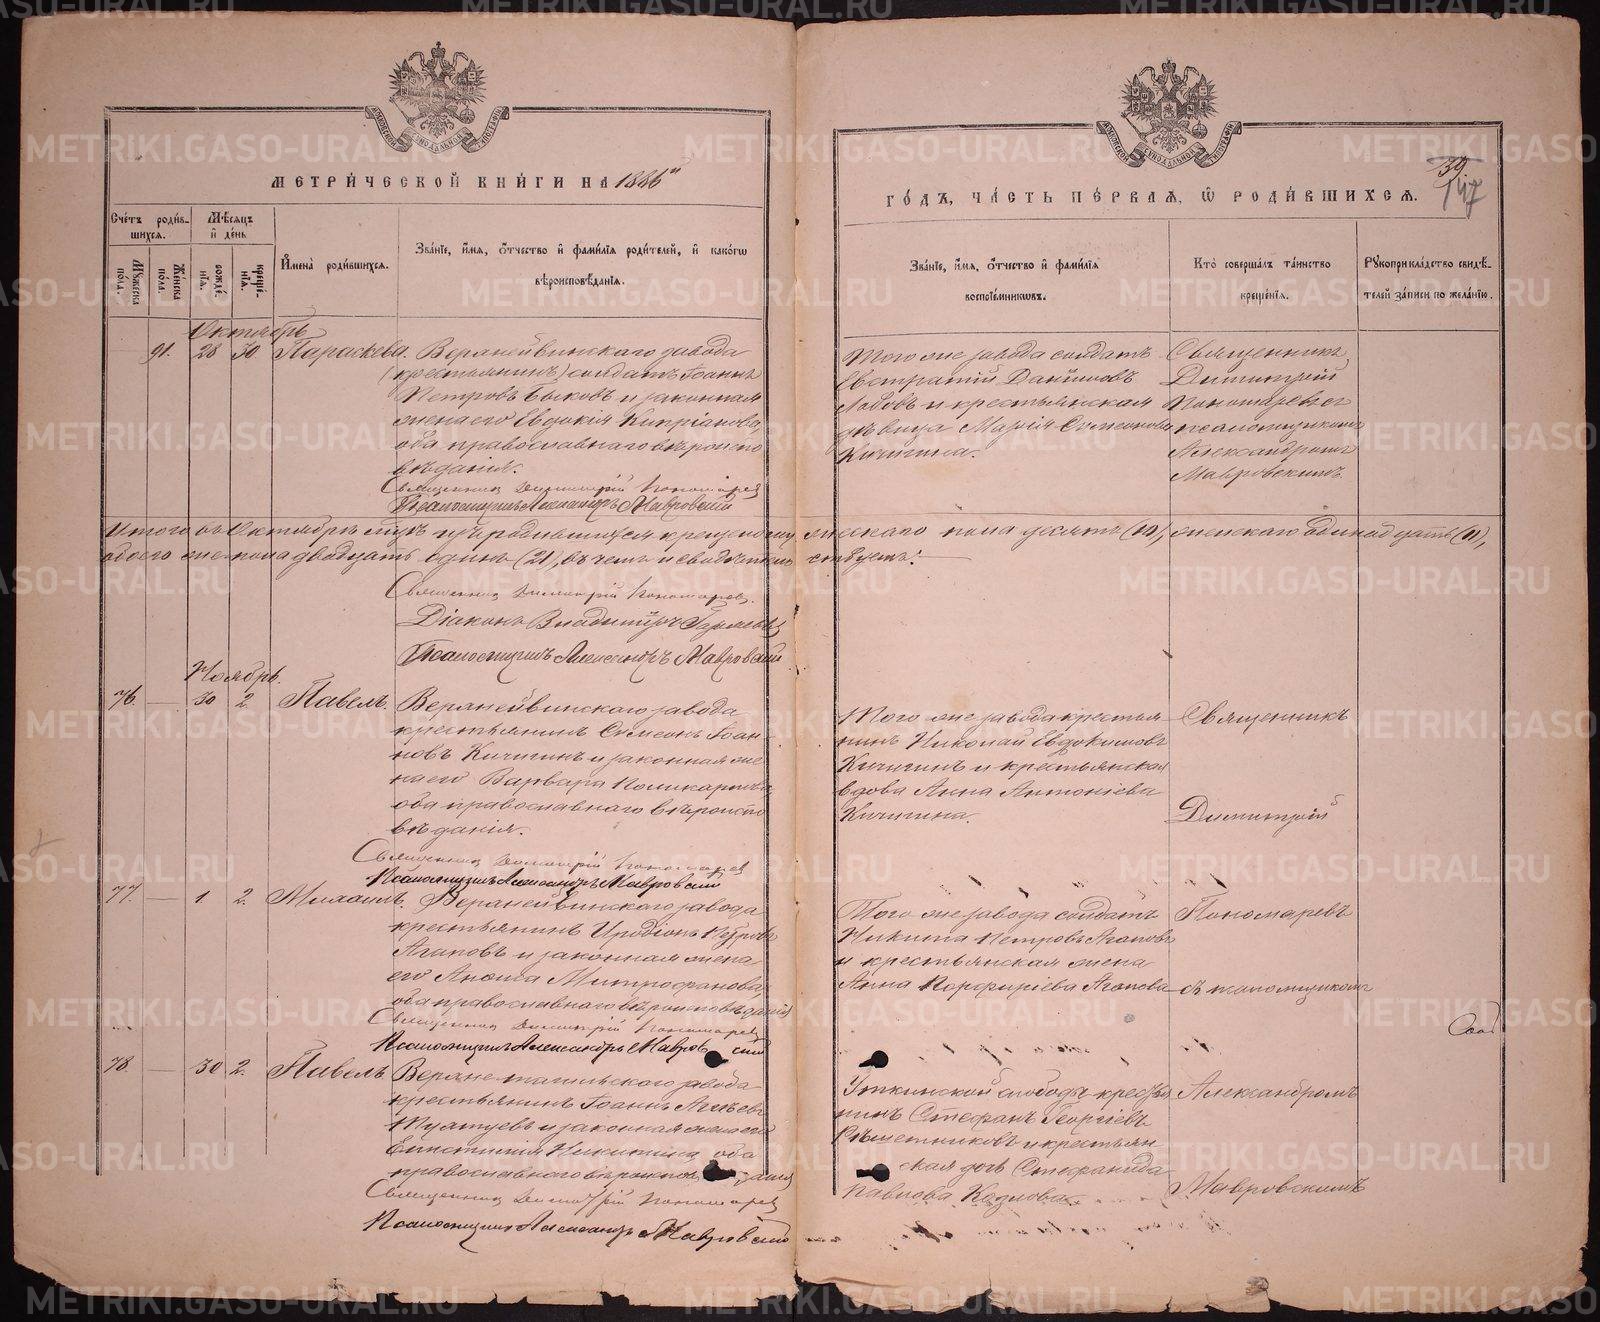 МЕТРИ́ЧЕСКОЙ КНИ́ГИ НА 1886й
ГО́ДЪ, ЧА́СТЬ ПЕ́РВАЯ, Ѿ РОДИ́ВШИХСЯ.
39.
147
Сче́тъ роди́вшихся.
Мѣ́сяцъ и́ де́нь
Му́жеска по́ла.
Же́нска по́ла.
рожде́нїя.
креще́нїя.
И҆мена̀ роди́вшихся.
Зва́нїе, и҆́мя, ѻ҆́тчество и҆ фами́лїя роди́телей, и҆ како́гѡ
вѣроисповѣ́данїя.
Зва́нїе, и҆́мя, ѻ҆́тчество и҆ фами́лїя
воспрїе́мниковъ.
Кто̀ соверша́лъ та́инство
креще́нїя.
Рꙋкоприкла́дство свидѣ́телей за́писи по жела́нїю.
Октябрь
91. 28 30 Параскева. Верхнейвинскаго завода
(крестьянинъ) солдатъ Іоаннъ
Петровъ Быковъ и законная
жена его Евдокія Кипріанова,
оба православнаго вѣроиспо
вѣданія.
Священникъ Димитрій Пономаревъ
Псаломщикъ Александръ Мавровскій
Того же завода солдатъ
Евстратій Даниловъ
и крестьянская
дѣвица Марія Симеонова
Кичигина.
Священникъ
Димитрій
Пономаревъ съ
псаломщикомъ
Александромъ
Мавровскимъ.
Итого въ Октябрѣ мцѣ родившихся крещено мужескаго пола десять (10), женскаго одиннадцать (11),
обоего же пола двадцать одинъ (21), въ чемъ и свидѣтельствуемъ:
Священникъ Димитрій Пономаревъ.
Діаконъ Владиміръ
Псаломщикъ Александръ Мавровскій
Ноябрь.
76. — 30 2. Павелъ. Верхнейвинскаго завода
крестьянинъ Симеонъ Іоан
новъ Кичигинъ и законная же
на его Варвара Поликарпова
оба православнаго вѣроиспо
вѣданія.
Священникъ Димитрій Пономаревъ
Псаломщикъ Александръ Мавровскій
Того же завода крестья
нинъ Николай Евдокимовъ
Кичигинъ и крестьянская
вдова Анна Антоніева
Кичигина.
Священникъ
Димитрій
77. — 1 2. Михаилъ. Верхнейвинскаго завода
крестьянинъ Иродіонъ Петровъ
Агаповъ и законная жена
его Анфиса Митрофанова,
оба православнаго вѣроисповѣданія
Священникъ Димитрій Пономаревъ
Псаломщикъ Александръ Мавровскій
Того же завода солдатъ
Никита Петровъ Агаповъ
и крестьянская жена
Анна Порфиріева Агапова
Пономаревъ
съ псаломщикомъ
78. — 30 2. Павелъ. Верхнетагильскаго завода
крестьянинъ Іоаннъ
и законная жена его
Никитина, оба
православнаго
Священникъ Димитрій Пономаревъ
Псаломщикъ Александръ Мавровскій
Уткинской слободы крестья
нинъ Стефанъ Георгіевъ
Рѣшетниковъ и крестьян
ская дочь Стефанида
Павлова Козлова
Александромъ
Мавровскимъ
METRIKI.GASO-URAL.RU